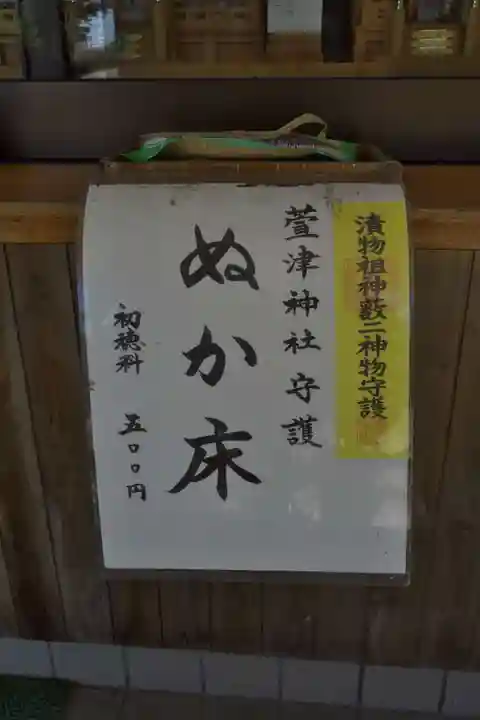 漬物祖神藪二神物守護
萱津神社守護
ぬか床
初穂料 五〇〇円